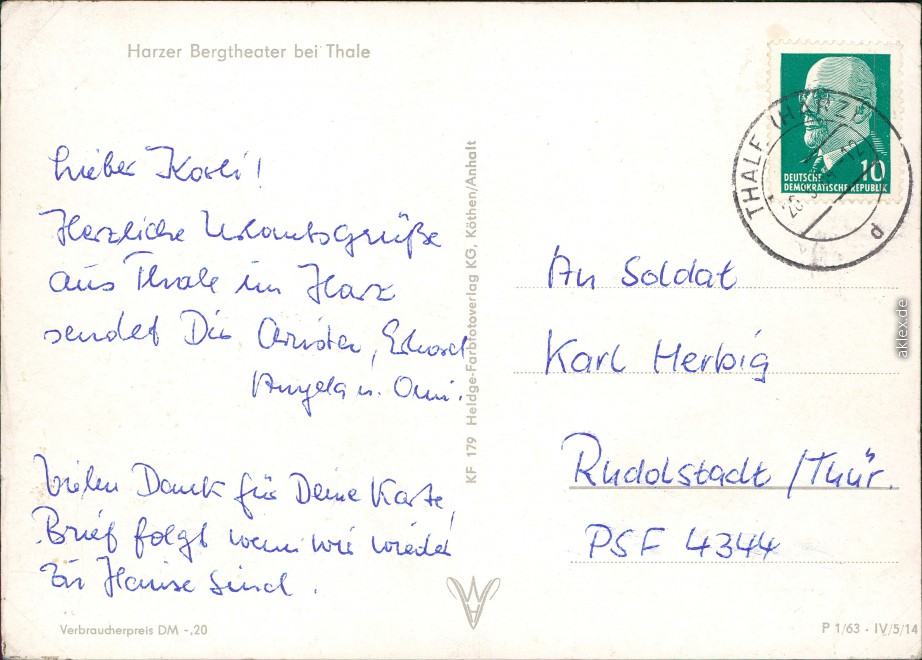 Harzer Bergtheater bei Thale
Lieber Karli!
Herzliche Urlaubsgrüße
aus Thale im Harz
sendet Dir Christa, Erhard
Angela u. Omi.
Vielen Dank für Deine Karte,
Brief folgt wenn wir wieder
zu Hause sind.
Verbraucherpreis DM -,20
KF 179 Heldge-Farbfotoverlag KG, Köthen/Anhalt
THALE (HARZ)
d
10
DEUTSCHE
DEMOKRATISCHE REPUBLIK
An Soldat
Karl Herbig
Rudolstadt /Thür.
PSF 4344
P 1/63 · IV/5/14
aklex.de